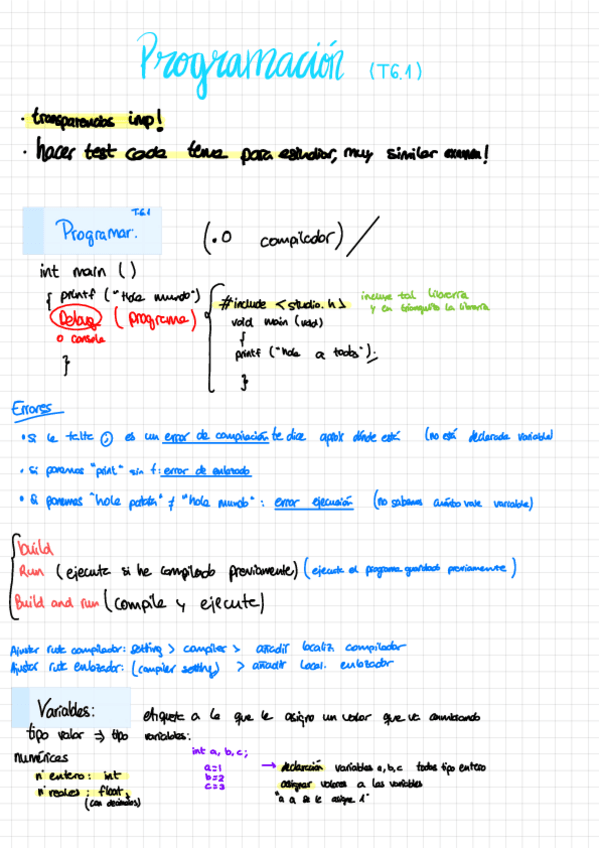 Programación (T6.1)
· transparencias imp!
· hacer test cada tema para estudiar, muy similar examen!
T.6.1
Programar: (.O compilador) /
int main ()
{ printf ("Hola mundo")
Debug (programa)
o consola
}
#include <studio.h> incluye tal librería
y en triangulito la librería
void main (void)
{
printf ("hola a todos");
}
Errores
· si le falta ; es un error de compilación te dice aprox dónde está (no está declarada variable)
· si ponemos "print" sin f: error de enlazado
· Si ponemos "hola patata" ≠ "hola mundo": error ejecusión (no sabemos cuánto vale variable)
build
Run (ejecuta si he compilado previamente) (ejecuta el programa guardado previamente)
Build and run (compile y ejecute)
Ajustar ruta compilador: setting > compiler > añadir localiz compilador
Ajustar ruta enlazador: (compiler setting) > añadir local. enlazador
Variables: etiqueta a la que le asigno un valor que va cambiando
tipo valor ⇒ tipo variables:
numéricas
n° entero: int
n° reales: float
(con decimales)
int a, b, c;
a=1
b=2
c=3
→ declaración variables a, b, c todas tipo entero
asignar valores a las variables
"a a se le asigna 1"